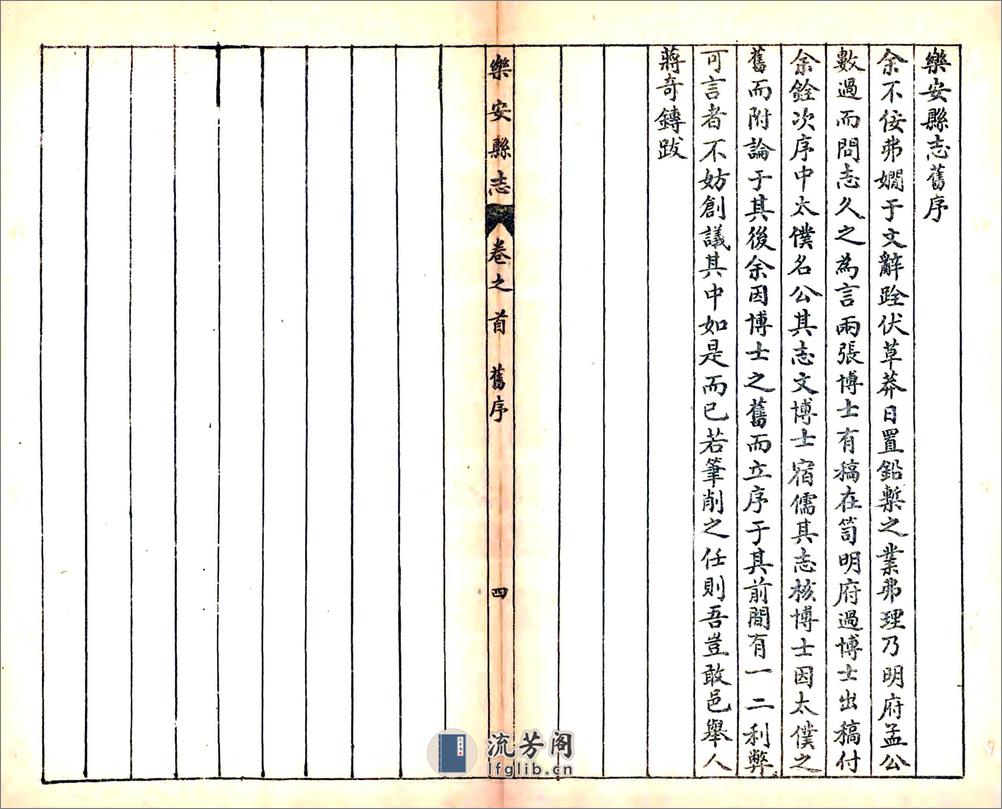 樂安縣志舊序
余不佞弗嫺于文辭跧伏草莽日置鉛槧之業弗理乃明府孟公
數過而問志久之為言兩張博士有稿在笥明府過博士出稿付
余銓次序中太僕名公其志文博士宿儒其志核博士因太僕之
舊而附論于其後余因博士之舊而立序于其前間有一二利弊
可言者不妨創議其中如是而已若筆削之任則吾豈敢邑舉人
蔣奇鏄跋
樂安縣志 卷之首 舊序 四
流芳阁
lfglib.cn